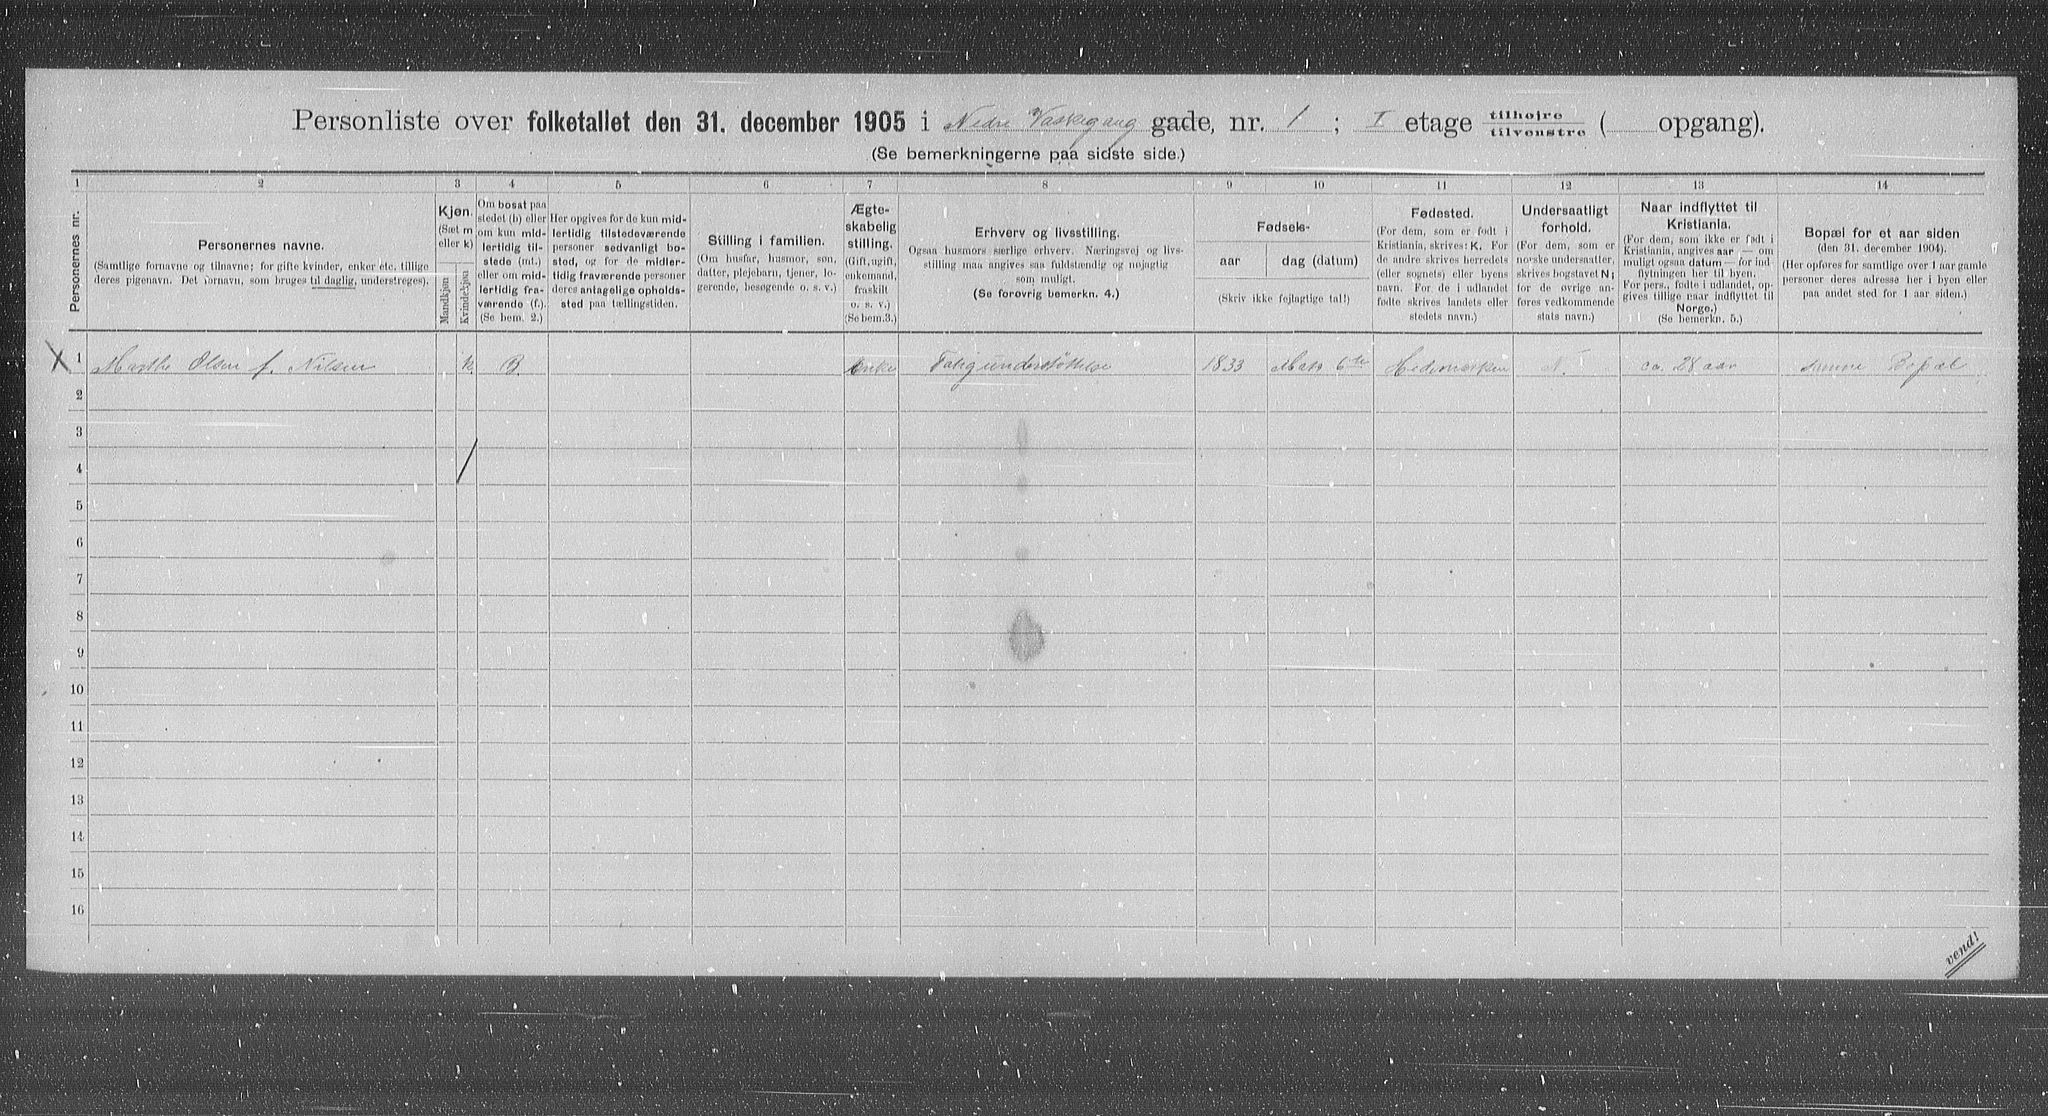 Personliste over folketallet den 31. december 1905 i Nedre Vaskegang gade, nr. 1 ; I etage tilhøjre tilvenstre ( opgang).
(Se bemerkningerne paa sidste side.)
1 2 3 4 5 6 7 8 9 10 11 12 13 14
Personernes nr.
Personernes navne.
(Samtlige fornavne og tilnavne; for gifte kvinder, enker etc. tillige
deres pigenavn. Det fornavn, som bruges til daglig, understreges).
Kjøn.
(Sæt m
eller k)
Mandkjøn
Kvindekjøn
Om bosat paa
stedet (b) eller
om kun mid-
lertidig til-
stede (mt.)
eller om mid-
lertidig fra-
værende (f.)
(Se bem. 2.)
Her opgives for de kun mid-
lertidig tilstedeværende
personer sedvanligt bo-
sted, og for de midler-
tidig fraværende personer
deres antagelige opholds-
sted paa tællingstiden.
Stilling i familien.
(Om husfar, husmor, søn,
datter, plejebarn, tjener, lo-
gerende, besøgende o. s. v.)
Ægte-
skabelig
stilling.
(Gift, ugift,
enkemand,
fraskilt
o. s. v.)
(Se bem. 3.)
Erhverv og livsstilling.
Ogsaa husmors særlige erhverv. Næringsvej og livs-
stilling maa angives saa fuldstændig og nøjagtig
som muligt.
(Se forøvrig bemerkn. 4.)
Fødsels-
aar
dag (datum)
(Skriv ikke fejlagtige tal!)
Fødested.
(For dem, som er født i
Kristiania, skrives: K. For
de andre skrives herredets
(eller sognets) eller byens
navn. For de i udlandet
fødte skrives landets eller
stedets navn.)
Undersaatligt
forhold.
(For dem, som er
norske undersaatter,
skrives bogstavet N;
for de øvrige an-
føres vedkommende
stats navn.)
Naar indflyttet til
Kristiania.
(For dem, som ikke er født i
Kristiania, angives aar — om
muligt ogsaa datum — for ind-
flytningen her til byen.
For pers., fødte i udlandet, op-
gives tillige naar indflyttet til
Norge.)
(Se bemerkn. 5.)
Bopæl for et aar siden
(den 31. december 1904).
(Her opføres for samtlige over 1 aar gamle
personer deres adresse her i byen eller
paa andet sted for 1 aar siden.)
X 1 Marthe Olsen f. Nilsen k. B. Enke Fatigunderstøttelse 1833 Mats 6te Hedemarken N. ca. 28 aar samme Bopæl
2
3
4
5
6
7
8
9
10
11
12
13
14
15
16
vend!